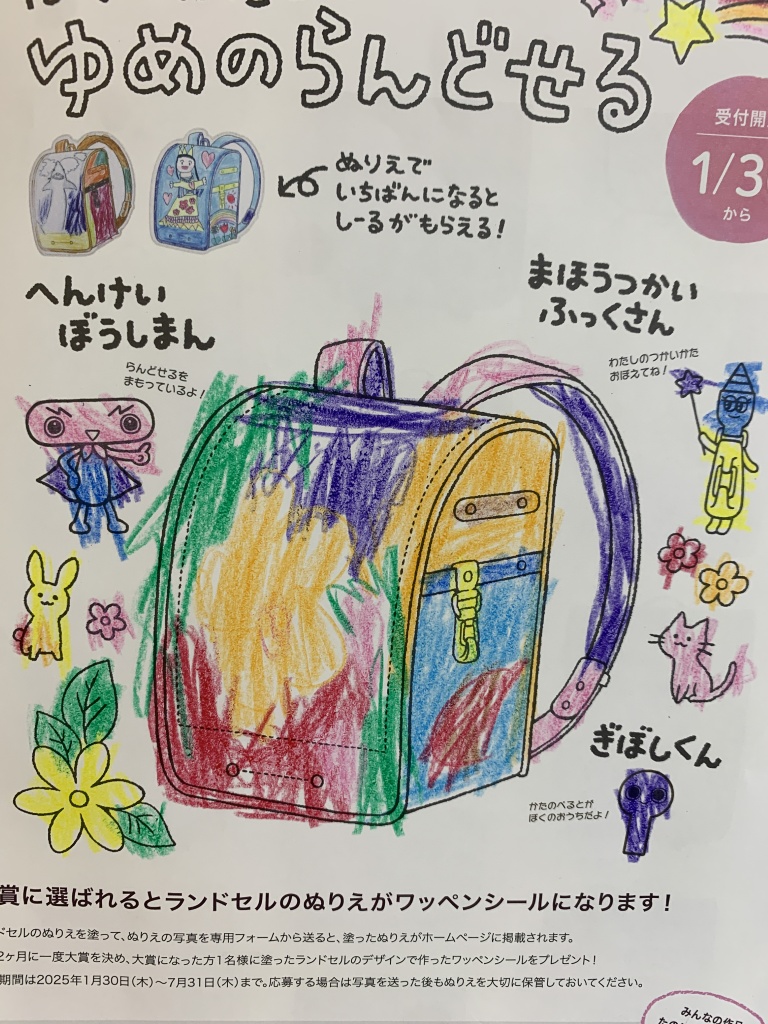 ゆめのらんどせる
受付開
1/3
から
ぬりえで
いちばんになると
しーるがもらえる!
へんけい
ぼうしまん
らんどせるを
まもっているよ!
まほうつかい
ふっくさん
わたしのつかいかた
おぼえてね!
ぎぼしくん
かたのべるとが
ぼくのおうちだよ!
賞に選ばれるとランドセルのぬりえがワッペンシールになります!
ドセルのぬりえを塗って、ぬりえの写真を専用フォームから送ると、塗ったぬりえがホームページに掲載されます。
2ヶ月に一度大賞を決め、大賞になった方1名様に塗ったランドセルのデザインで作ったワッペンシールをプレゼント!
期間は2025年1月30日(木)〜7月31日(木)まで。応募する場合は写真を送った後もぬりえを大切に保管しておいてください。
みんなの作品